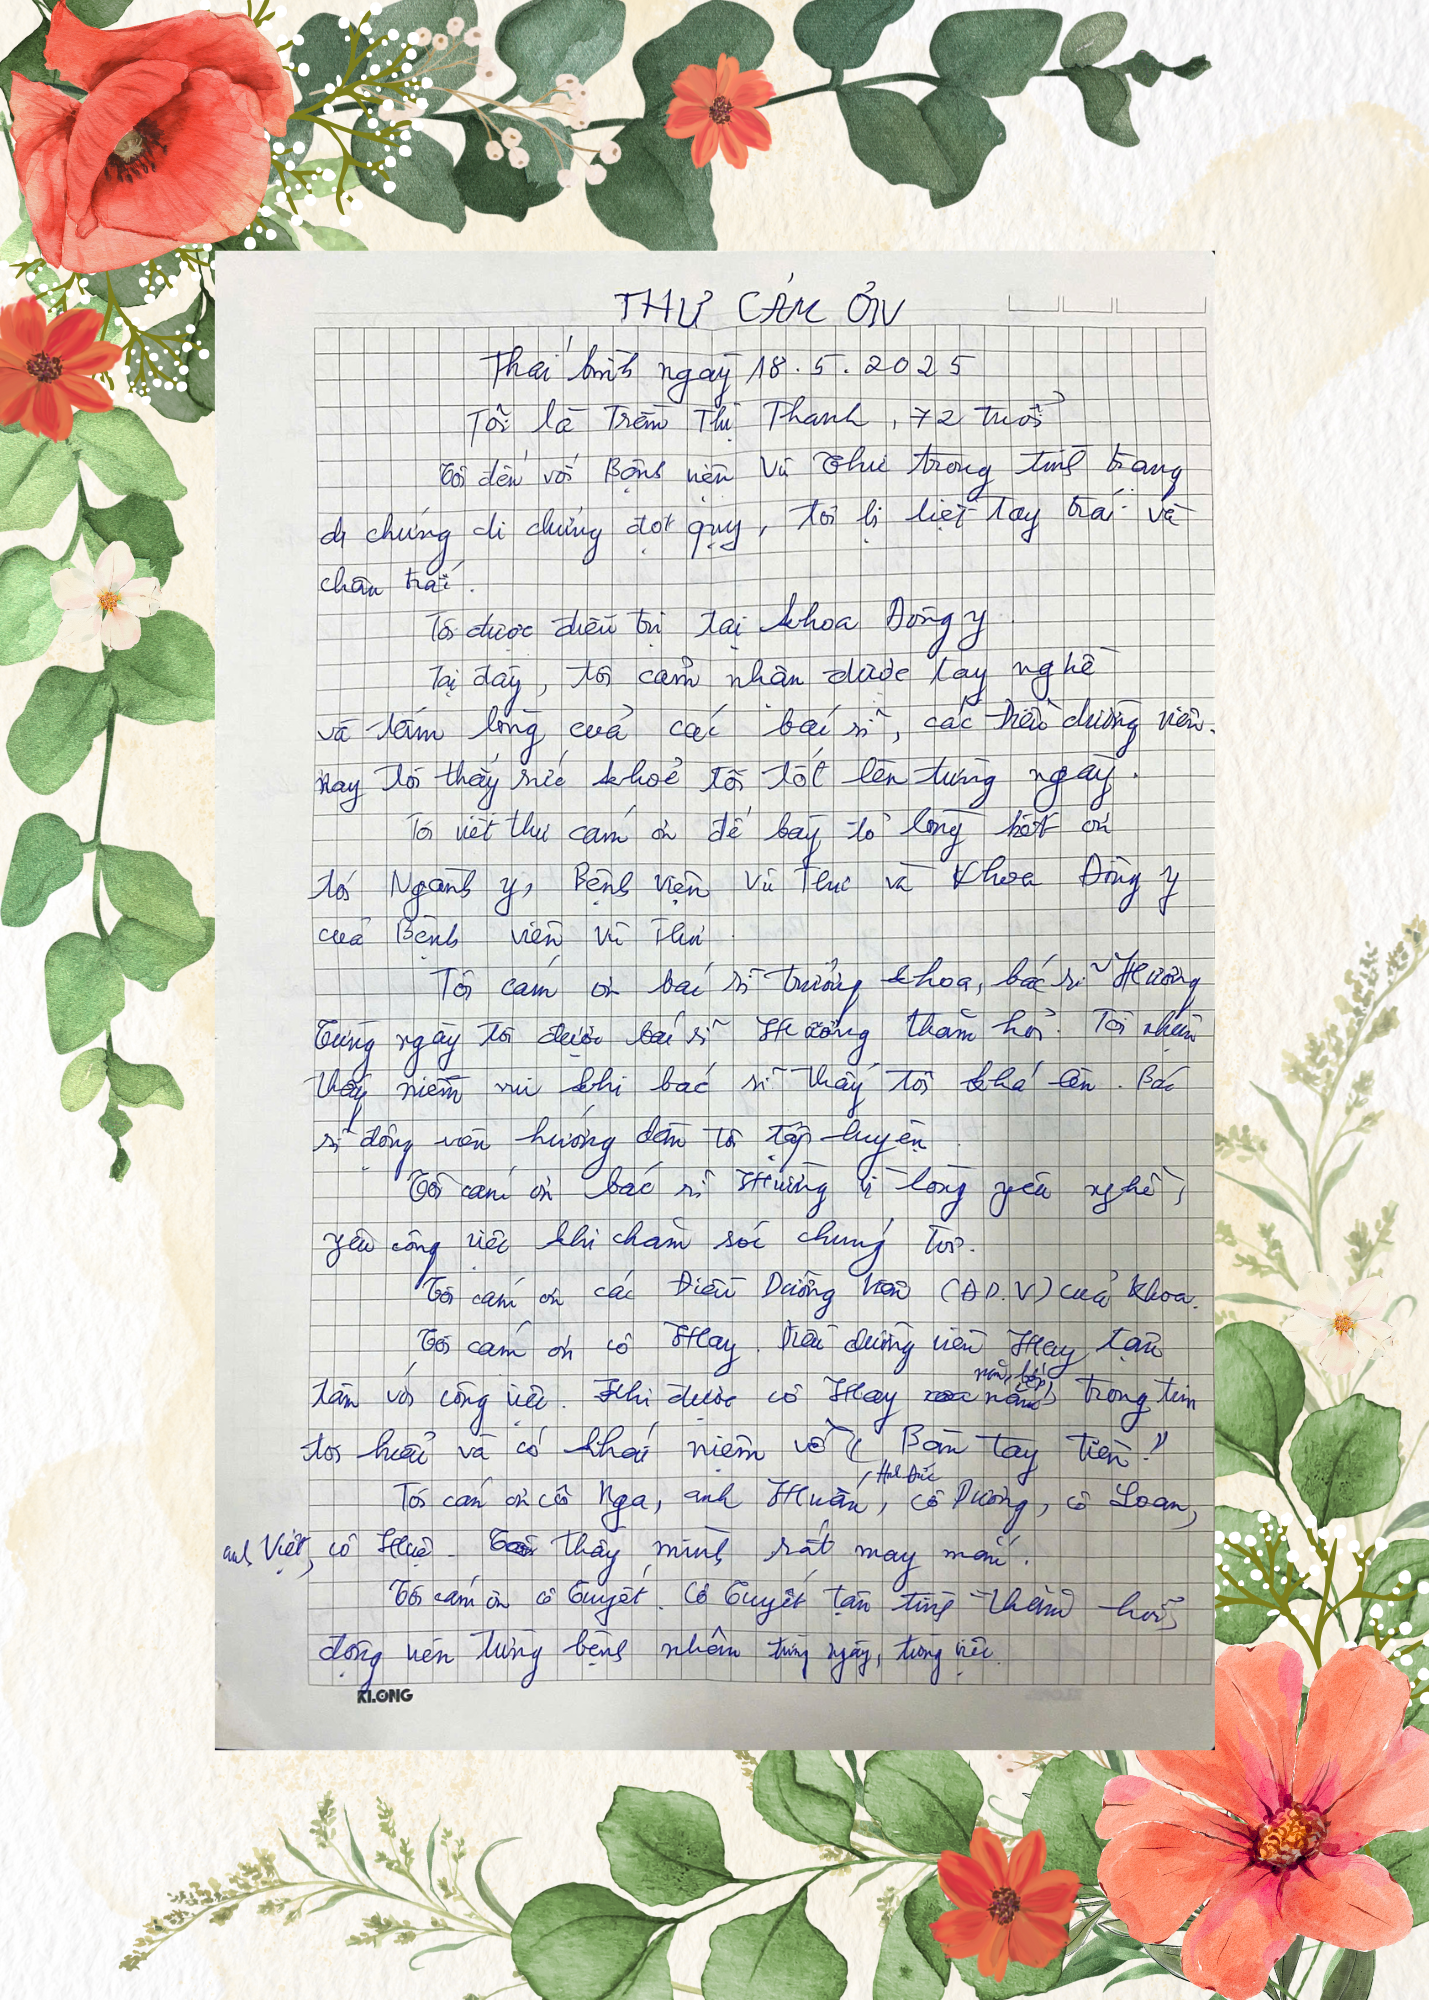 THƯ CẢM ƠN
Thái bình ngày 18.5.2025
Tôi là Trần Thị Thanh, 72 tuổi
Tôi đến với Bệnh viện Vũ Thư trong tình trạng
di chứng di chứng đột quỵ, tôi bị liệt tay trái và
chân trái.
Tôi được điều trị tại khoa Đông y.
Tại đây, tôi cảm nhận được tay nghề
và tấm lòng của các bác sĩ, các điều dưỡng viên.
Nay tôi thấy sức khoẻ tôi tốt lên từng ngày.
Tôi viết thư cảm ơn để bày tỏ lòng biết ơn
tới Ngành y, Bệnh viện Vũ Thư và Khoa Đông y
của Bệnh viện Vũ Thư.
Tôi cảm ơn bác sĩ trưởng khoa, bác sĩ Hương
Từng ngày tôi được bác sĩ Hương thăm hỏi. Tôi nhận
thấy niềm vui khi bác sĩ thấy tôi khá lên. Bác
sĩ động viên hướng dẫn tôi tập luyện.
Tôi cảm ơn bác sĩ vì lòng yêu nghề,
yêu công việc khi chăm sóc chúng tôi.
Tôi cảm ơn các Điều Dưỡng Viên (Đ.D.V) của khoa.
Tôi cảm ơn cô Hay. Điều dưỡng viên Hay tận
tâm với công việc. Khi được cô Hay nắn, bóp trong tim
tôi hiểu và có khái niệm về "Bàn tay tiên"
Tôi cảm ơn cô Nga, anh Huấn, Anh Đức, cô Dương, cô Loan,
anh Việt, cô Huệ. Tôi thấy mình rất may mắn.
Tôi cảm ơn cô Tuyết. Cô Tuyết tận tình thăm hỏi,
động viên từng bệnh nhân từng ngày, từng việc.
KLONG